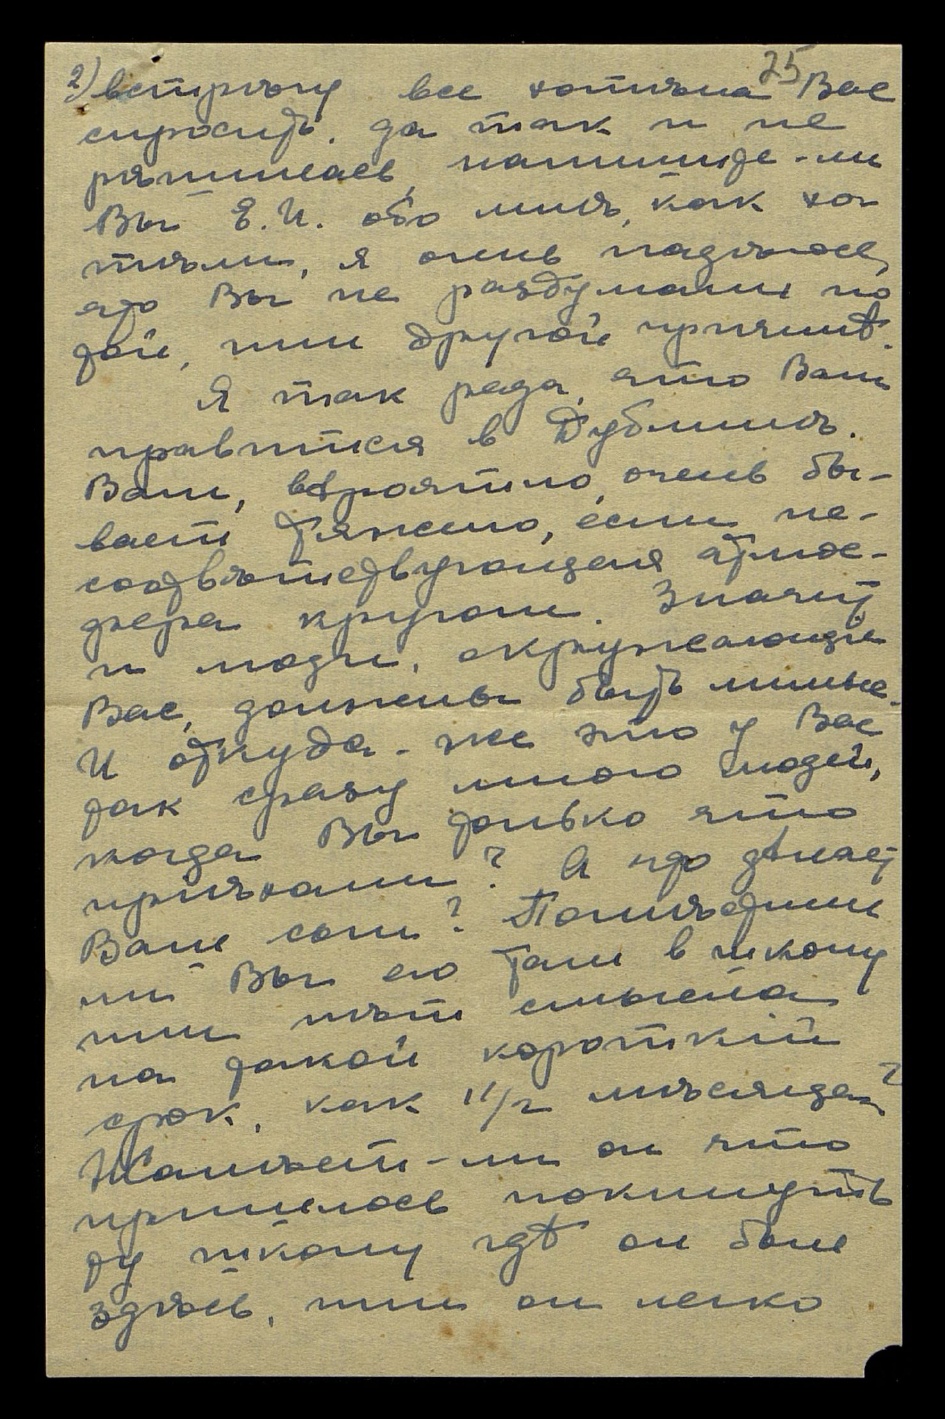 2) 25
встрѣчу все хотѣла Вас
спросить, да так и не
рѣшилась, напишите-ли
Вы Е.И. обо мнѣ, как хо
тѣли, я очень надѣюсь,
что Вы не раздумали по
той, или другой причинѣ.
Я так рада, что Вам
нравится в Дублинѣ.
Вам, вѣроятно, очень бы-
вает тяжело, если не-
соотвѣтствующая атмос-
фера кругом. Значит
и люди, окружающіе
Вас, должны быть милые.
И откуда-же это у Вас
так сразу много людей,
когда Вы только что
пріѣхали? А что дѣлает
Ваш сын? Помѣстили
ли Вы его там в школу
или нѣт смысла
на такой короткій
срок, как 1 1/2 мѣсяца?
Жалѣет-ли он что
пришлось покинуть
ту школу гдѣ он был
здѣсь, или он легко